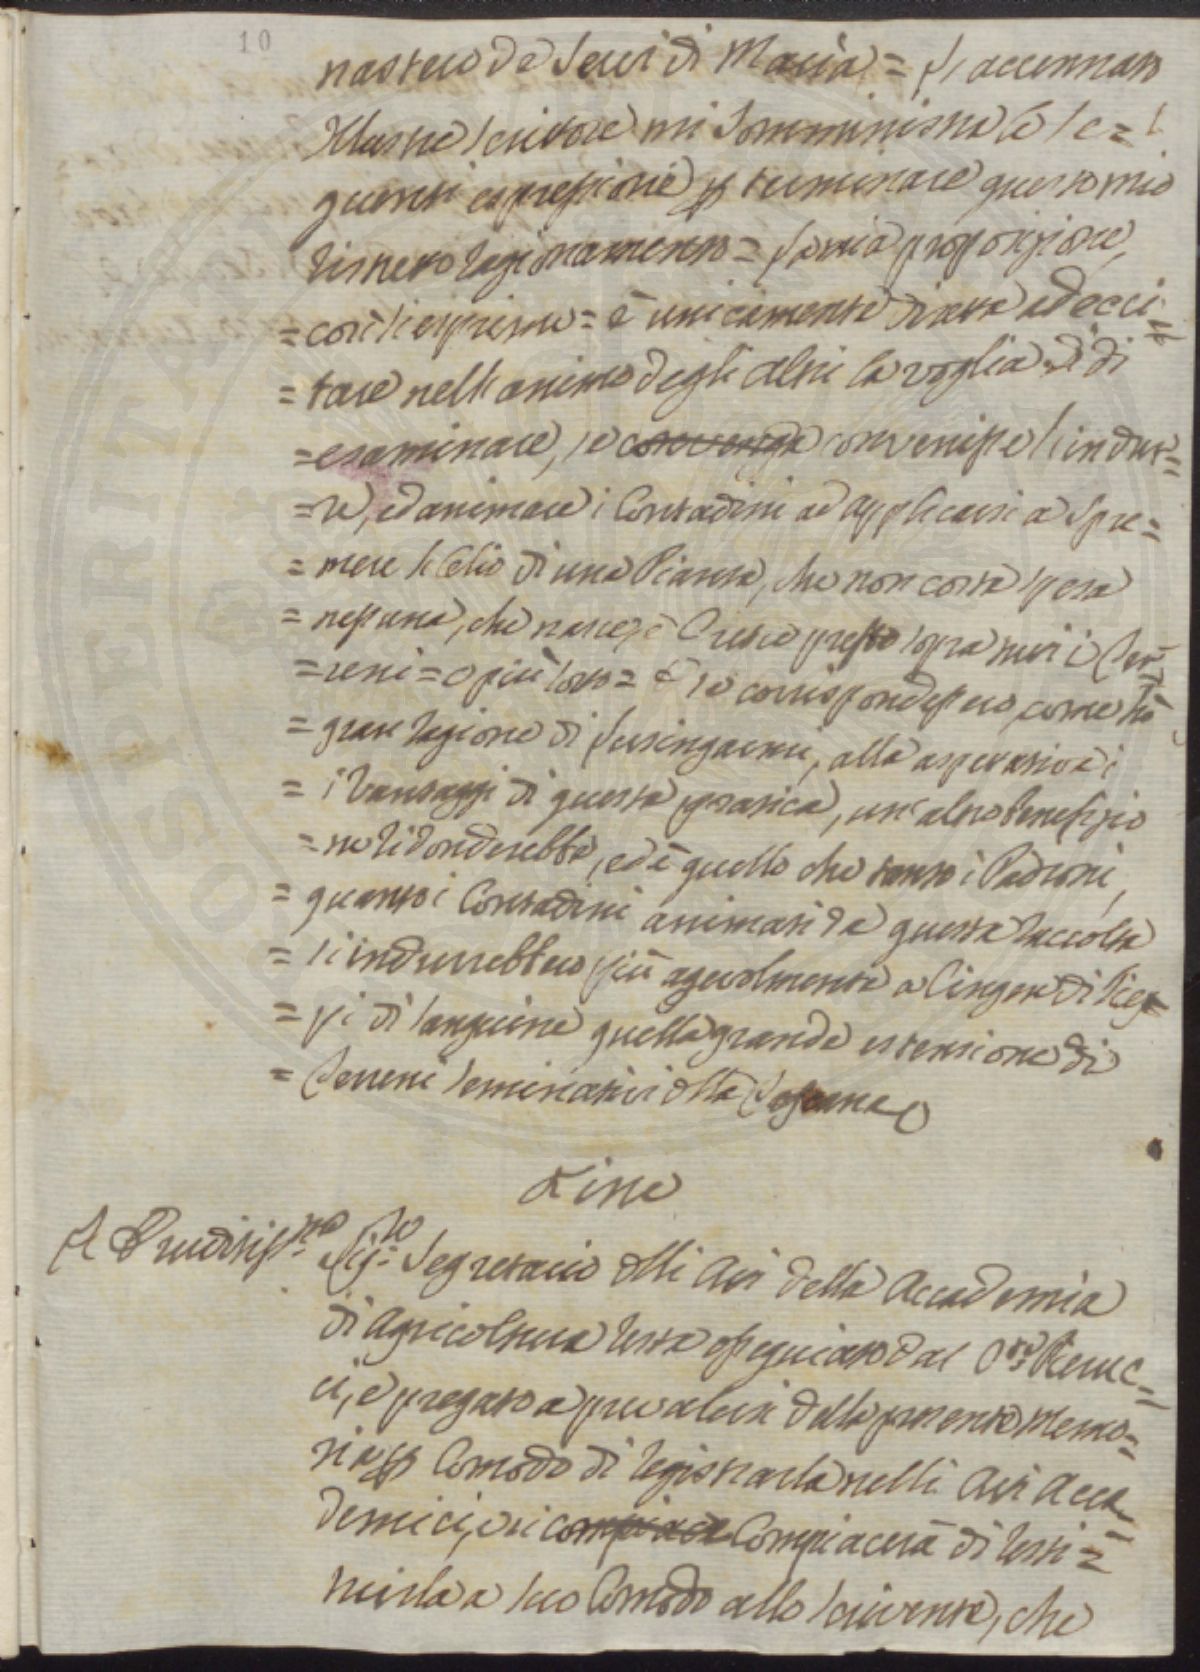 10
nastero de Servi di Maria = L'accennato
Illustre scrittore mi somministra le se=
guenti espressioni p terminare questo mio
ristretto ragionamento = La mia proposizione,
= così si esprime = è unicamente diretta ad ecci=
= tare nell'animo degli altri la voglia di di
= esaminare, se convenga convenisse l'indur=
= re, ed animare i Contadini ad applicarsi a spre=
= mere l'Olio di una Pianta, che non costa spesa
= nessuna, che nasce, e Cresce presto sopra tutti i Ter=
= reni = o più sotto = E se corrispondessero, come hò
= gran ragione di lusingarmi, alla aspettativa i
= i Vantaggi di questa pratica, un'altro benefizio
= ne ridonderebbe, ed è quello che tanto i Padroni,
= quanto i Contadini animati da questa raccolta
= si indurrebbero più agevolmente a Cingere di Siep=
= pi di sanguine quella grande estensione di
= Terreni seminativi della Toscana
Fine
Il Eruditiss.mo Sig.re Segretario delli Atti della Accademia
di Agricoltura resta ossequiato dal Dre Pieruc=
ci, e pregato a prevalersi della presente Memo=
ria p Comodo di registrarla nelli Atti Acca
demici, e si compiacerà Compiacerà di resti=
tuirla a suo Comodo allo scrivente, che